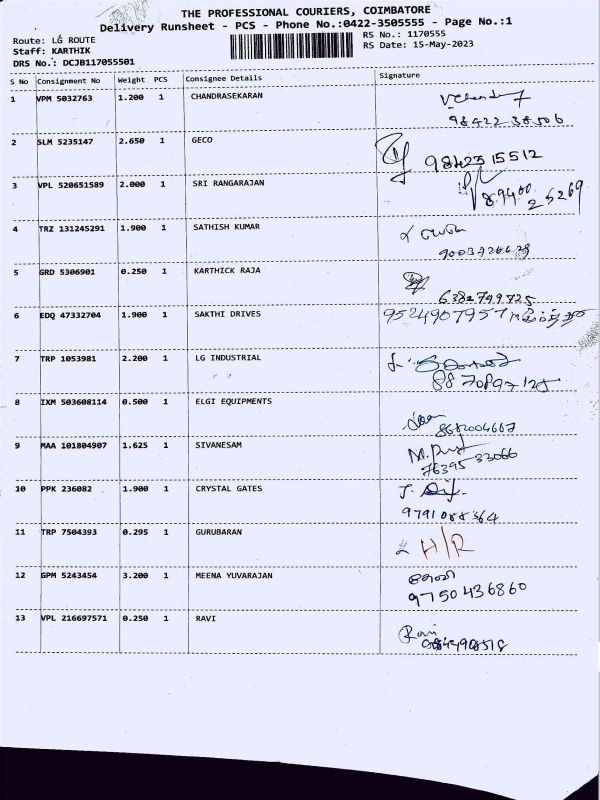 THE PROFESSIONAL COURIERS, COIMBATORE
Delivery Runsheet - PCS - Phone No.:0422-3505555 - Page No.:1
Route: LG ROUTE
Staff: KARTHIK
DRS No.: DCJB117055501
RS No.: 1170555
RS Date: 15-May-2023
S No Consignment No Weight PCS Consignee Details Signature
1 VPM 5032763 1.200 1 CHANDRASEKARAN
98422 38506
2 SLM 5235147 2.650 1 GECO
9842515512
3 VPL 520651589 2.000 1 SRI RANGARAJAN
89400 25269
4 TRZ 131245291 1.900 1 SATHISH KUMAR
5 GRD 5306901 0.250 1 KARTHICK RAJA
6382799725
6 EDQ 47332704 1.900 1 SAKTHI DRIVES 9524907957
7 TRP 1053981 2.200 1 LG INDUSTRIAL
8870897125
8 IXM 503608114 0.500 1 ELGI EQUIPMENTS
8682004667
9 MAA 101804907 1.625 1 SIVANESAM
76395 33066
10 PPK 236082 1.900 1 CRYSTAL GATES
9791088364
11 TRP 7504393 0.295 1 GURUBARAN H/R
12 GPM 5243454 3.200 1 MEENA YUVARAJAN
9750436860
13 VPL 216697571 0.250 1 RAVI Ravi